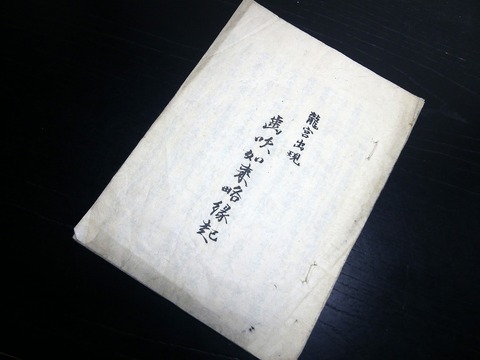 龍宮出現
歯吹如来略縁起